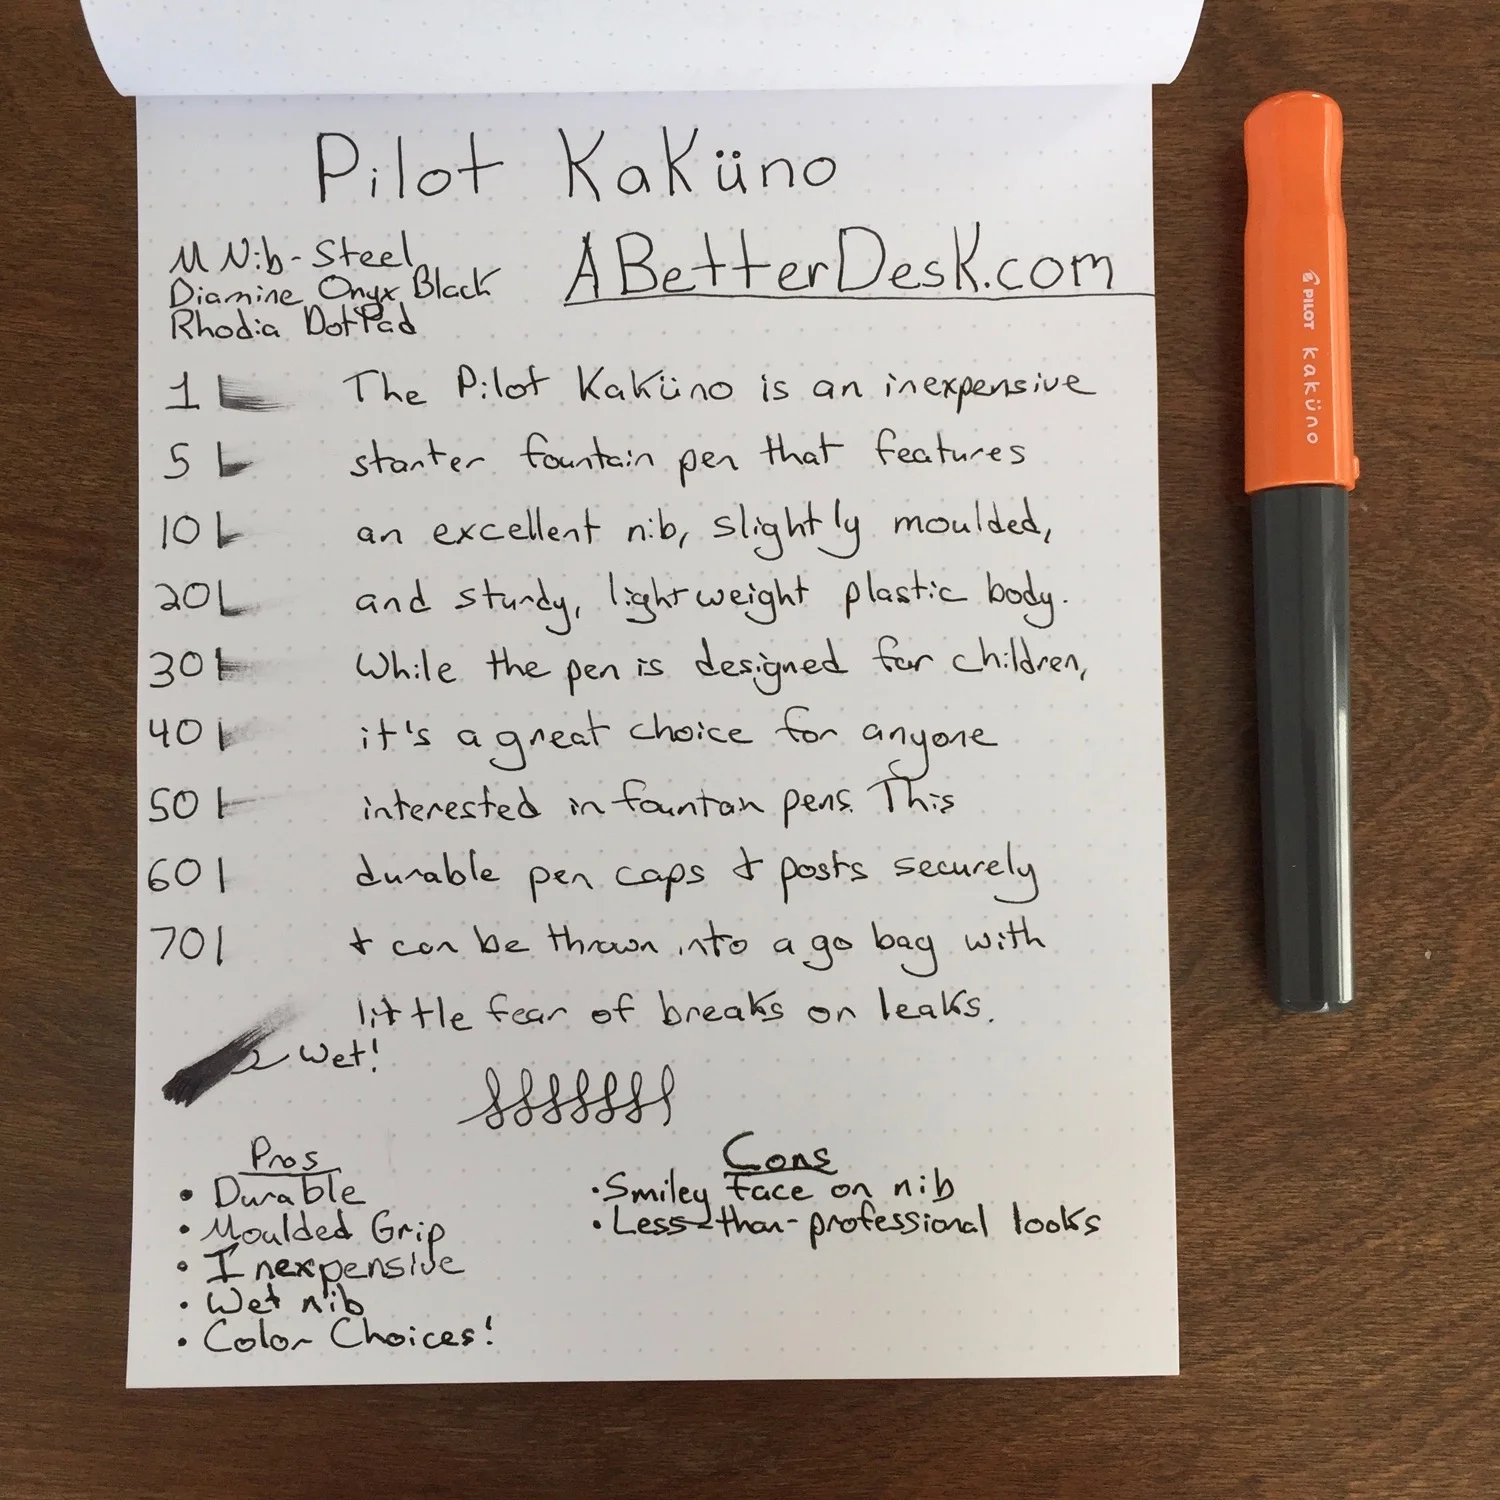 Pilot Kaküno
ABetterDesk.com
M Nib-Steel
Diamine Onyx Black
Rhodia DotPad
1 The Pilot Kaküno is an inexpensive
5 starter fountain pen that features
10 an excellent nib, slightly moulded,
20 and sturdy, lightweight plastic body.
30 While the pen is designed for children,
40 it's a great choice for anyone
50 interested in fountan pens. This
60 durable pen caps & posts securely
70 & can be thrown into a go bag with
little fear of breaks or leaks.
Wet!
Pros
• Durable
• Moulded Grip
• Inexpensive
• Wet nib
• Color Choices!
Cons
• Smiley face on nib
• Less-than-professional looks
PILOT kaküno